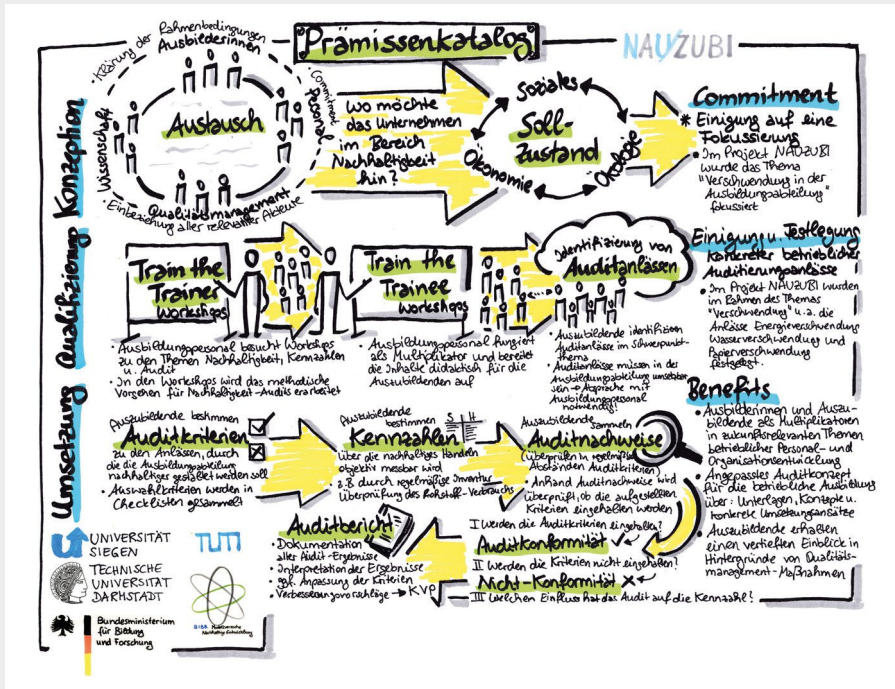 Prämissenkatalog
NAUZUBI
Konzeption
Qualifizierung
Umsetzung
• Klärung der Rahmenbedingungen
Ausbilderinnen
• Commitment
Personal
Wissenschaft
Austausch
Qualitätsmanagement
• Einbeziehung aller relevanter Akteure
Wo möchte
das Unternehmen
im Bereich
Nachhaltigkeit
hin?
Soziales
Soll-
zustand
Ökonomie
Ökologie
Commitment
* Einigung auf eine
Fokussierung
• Im Projekt NAUZUBI
wurde das Thema
"Verschwendung in der
Ausbildungsabteilung"
fokussiert
Train the
Trainer
Workshops
• Ausbildungspersonal besucht Workshops
zu den Themen Nachhaltigkeit, Kennzahlen
u. Audit
• In den Workshops wird das methodische
Vorgehen für Nachhaltigkeit-Audits erarbeitet
Train the
Trainee
Workshops
• Ausbildungspersonal fungiert
als Multiplikator und bereitet
die Inhalte didaktisch für die
Auszubildenden auf
Identifizierung von
Auditanlässen
• Auszubildende identifizieren
Auditanlässe im Schwerpunkt-
thema
• Auditanlässe müssen in der
Ausbildungsabteilung umsetzbar
sein → Absprache mit
Ausbildungspersonal
notwendig!
Einigung u. Festlegung
konkreter betrieblicher
Auditierungsanlässe
• Im Projekt NAUZUBI wurden
im Rahmen des Themas
"Verschwendung" u.a. die
Anlässe Energieverschwendung
Wasserverschwendung und
Papierverschwendung
festgelegt.
Auszubildende bestimmen
Auditkriterien
zu den Anlässen, durch
die die Ausbildungsabteilung
nachhaltiger gestaltet werden soll
• Auswahlkriterien werden in
Checklisten gesammelt
Auszubildende
bestimmen
S I H
Kennzahlen
über die nachhaltiges Handeln
objektiv messbar wird
• z.B. durch regelmäßige Inventur
Überprüfung des Rohstoff-Verbrauchs
Auszubildende
sammeln
Auditnachweise
(überprüfen in regelmäßigen
Abständen Auditkriterien)
• Anhand Auditnachweise wird
überprüft, ob die aufgestellten
Kriterien eingehalten werden
I Werden die Auditkriterien eingehalten?
Auditkonformität
II Werden die Kriterien nicht eingehalten?
Nicht-Konformität
III Welchen Einfluss hat das Audit auf die Kennzahl?
Auditbericht
• Dokumentation
aller Audit-Ergebnisse
• Interpretation der Ergebnisse
ggf. Anpassung der Kriterien
• Verbesserungsvorschläge → KVP
Benefits
• Ausbilderinnen und Auszu-
bildende als Multiplikatoren
in zukunftsrelevanten Themen
betrieblicher Personal- und
Organisationsentwicklung
• Angepasstes Auditkonzept
für die betriebliche Ausbildung
über: Unterlagen, Konzepte u.
konkrete Umsetzungsansätze
• Auszubildende erhalten
einen vertieften Einblick in
Hintergründe von Qualitäts-
management-Maßnahmen
UNIVERSITÄT
SIEGEN
TUM
TECHNISCHE
UNIVERSITÄT
DARMSTADT
BIBB Modellversuche
Nachhaltige Entwicklung
Bundesministerium
für Bildung
und Forschung